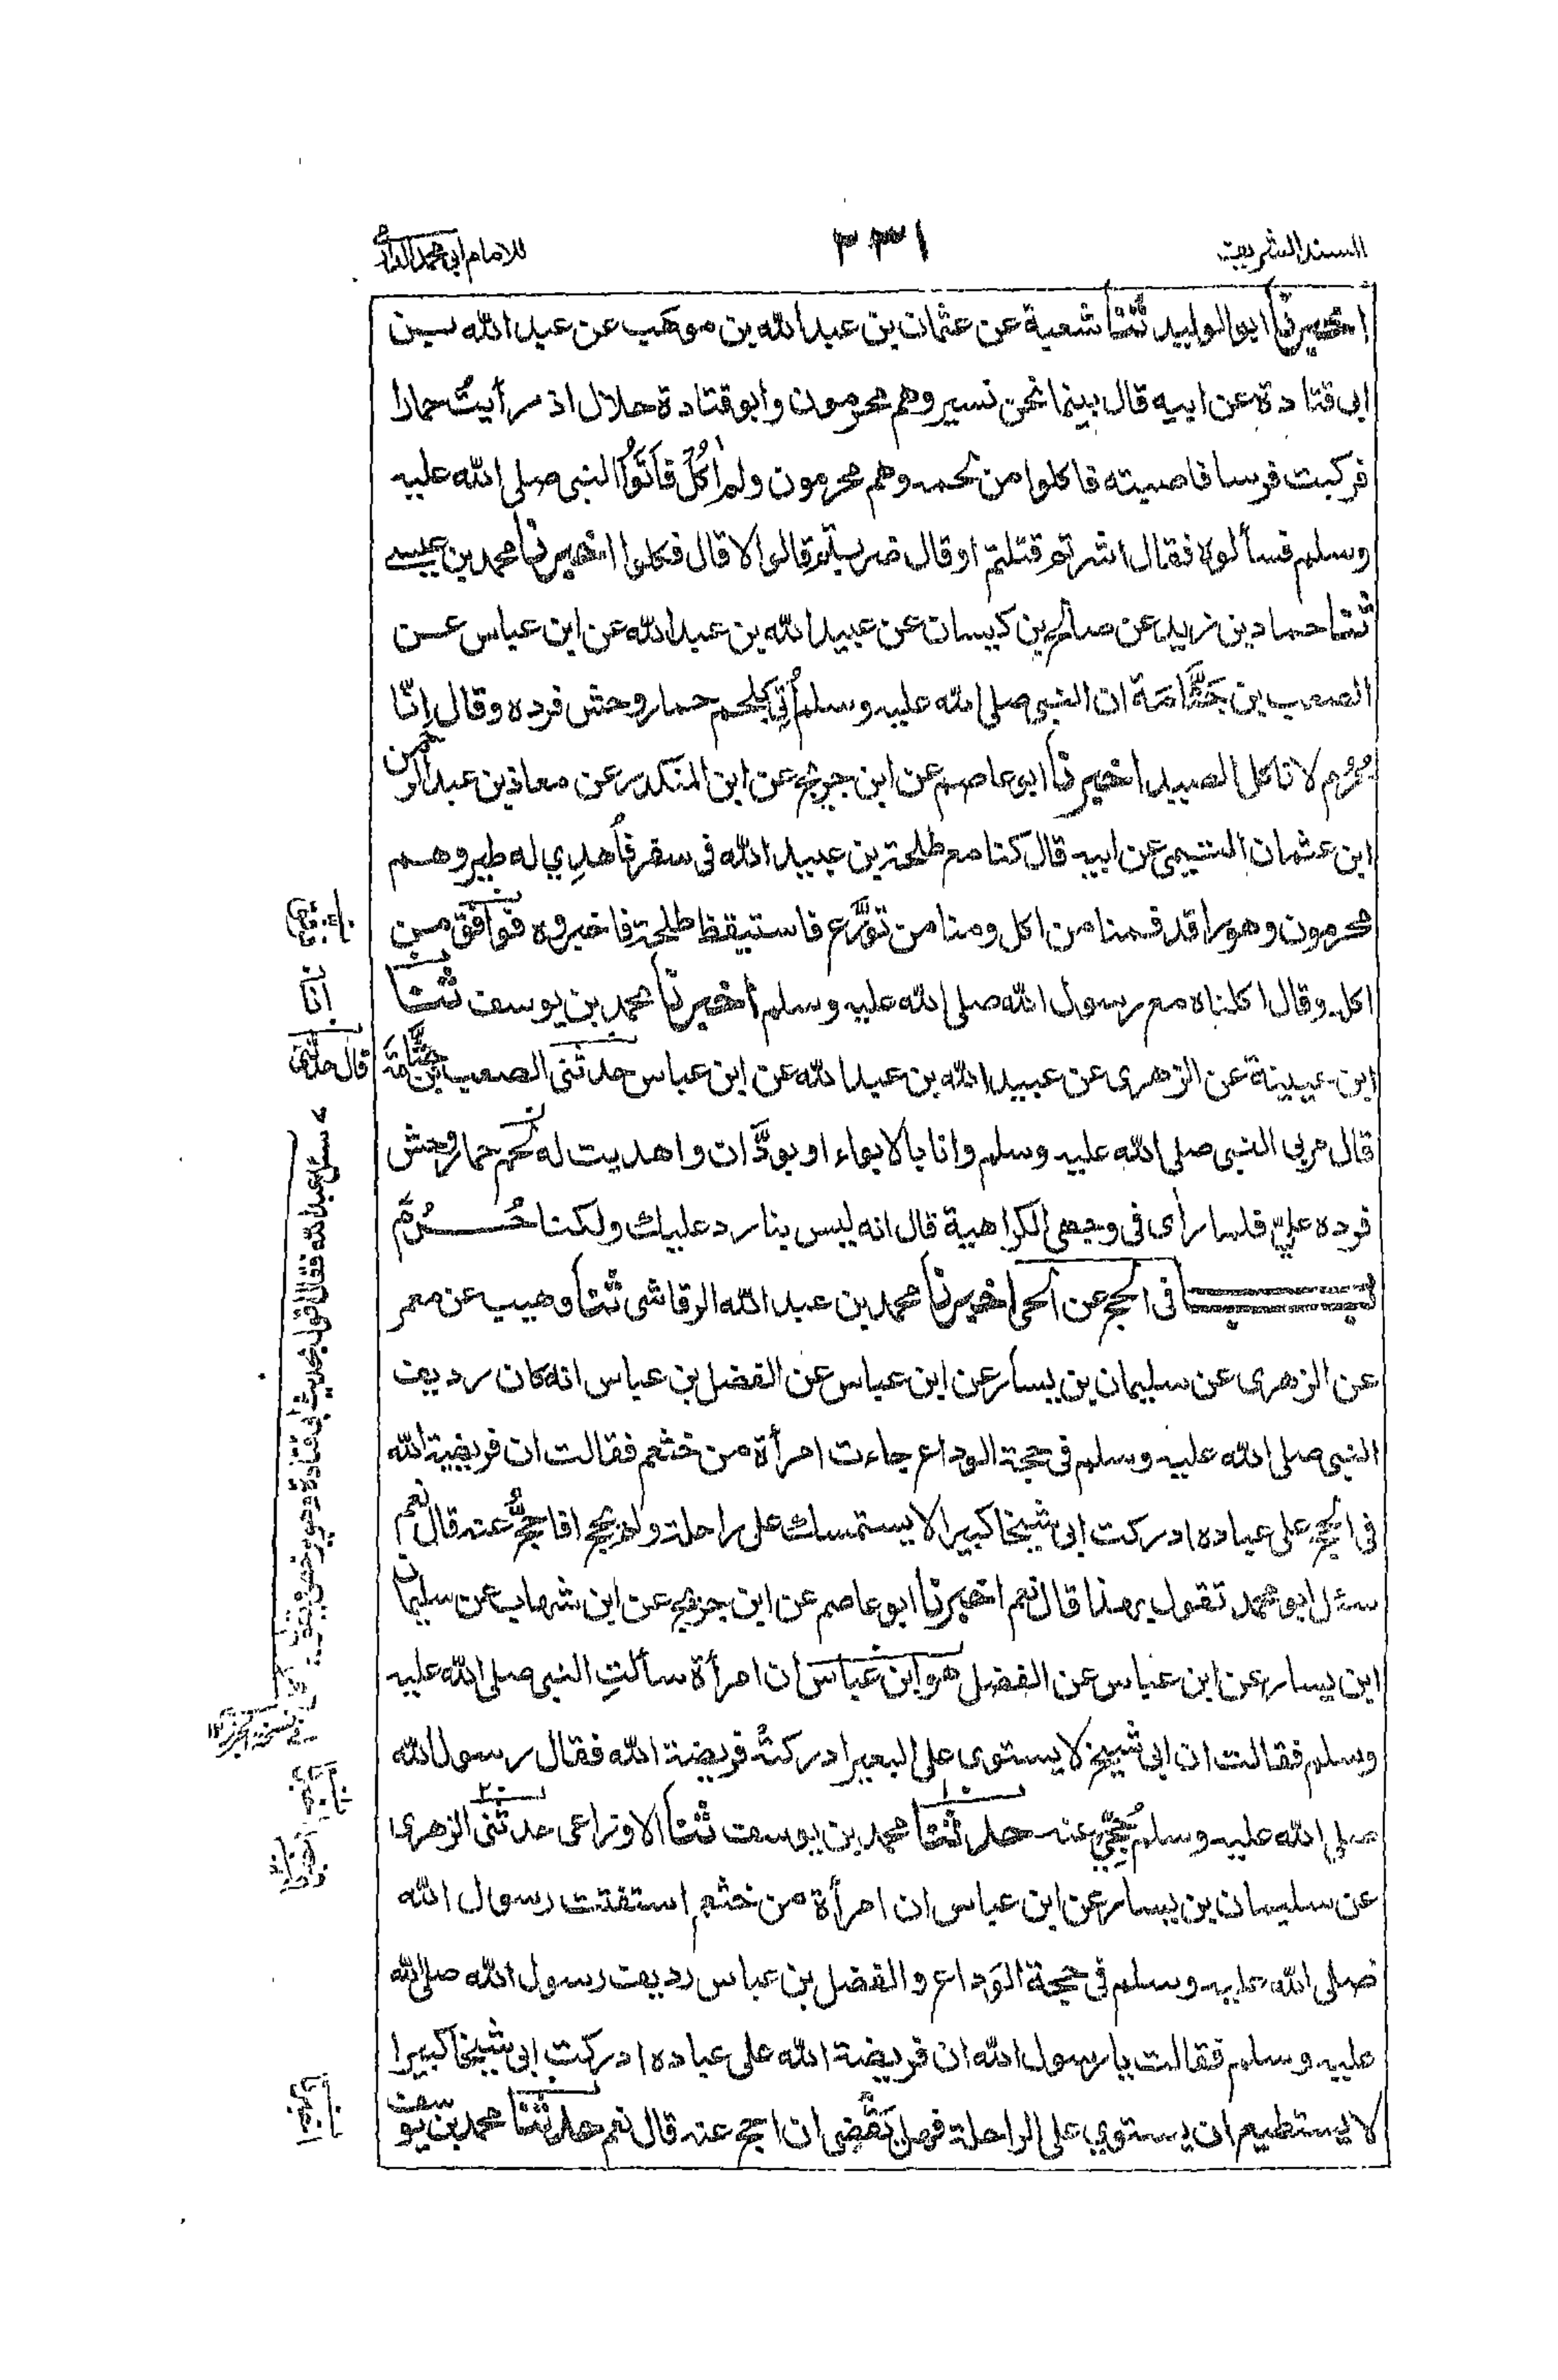 المسند الشريف
٣٣١
للامام ابى محمد الدارمى
اخبرنا ابو الوليد ثنا شعبة عن عثمان بن عبد الله بن موهب عن عبد الله بن
ابى قتادة عن ابيه قال بينما نحن نسير وهم محرمون وابو قتادة حلال اذ رأيت حمارا
فركبت فرسا فاصبته فاكلوا من لحمه وهم محرمون ولم اٰكُلْ فَاَتَوُا النبى صلى الله عليه
وسلم فسألوه فقال اشرتم قتلتم او قال ضربتم قالوا لا قال فكلوا اخبرنا محمد بن عيسے
ثنا حماد بن زيد عن صالح بن كيسان عن عبيد الله بن عبد الله عن ابن عباس عن
الصعب بن جَثَّامَة ان النبى صلى الله عليه وسلم اُتِيَ بلحم حمار وحش فرده وقال اِنّا
حُرُم لا ناكل الصيد اخبرنا ابو عاصم عن ابن جريج عن ابن المنكدر عن معاذ بن عبد الرحمن
ابن عثمان التيمى عن ابيه قال كنا مع طلحة بن عبيد الله فى سفر فاُهدِي له طير وهم
محرمون وهو راقد فمنا من اكل ومنا من تَوَرَّع فاستيقظ طلحة فاخبروه فوافق من
اكل وقال اكلناه مع رسول الله صلى الله عليه وسلم اخبرنا محمد بن يوسف ثنا
ابن عيينة عن الزهرى عن عبيد الله بن عبد الله عن ابن عباس حدثنى الصعب بن جَثَّامَة
قال مر بى النبى صلى الله عليه وسلم وانا بالابواء او بودَّان واهديت له لحم حمار وحش
فرده علىّ فلما رأى فى وجهى الكراهية قال انه ليس بنا رد عليك ولكنا حُرُمٌ
باب فى الحج عن الحى اخبرنا محمد بن عبد الله الرقاشى ثنا وهيب عن معمر
عن الزهرى عن سليمان بن يسار عن ابن عباس عن الفضل بن عباس انه كان رديف
النبى صلى الله عليه وسلم فى حجة الوداع جاءت امرأة من خثعم فقالت ان فريضة الله
فى الحج على عباده ادركت ابى شيخا كبيرا لا يستمسك على راحلة ولم يحج افاحجُّ عنه قال نعم
سئل ابو محمد تقول بهذا قال نعم اخبرنا ابو عاصم عن ابن جريج عن ابن شهاب عن سليمان
ابن يسار عن ابن عباس عن الفضل هو ابن عباس ان امرأة سألتِ النبى صلى الله عليه
وسلم فقالت ان ابى شيخ لا يستوى على البعير ادركتْه فريضة الله فقال رسول الله
صلى الله عليه وسلم حُجِّي عنه حدثنا محمد بن يوسف ثنا الاوزاعى حدثنى الزهرى
عن سليمان بن يسار عن ابن عباس ان امرأة من خثعم استفتت رسول الله
صلى الله عليه وسلم فى حجة الوداع والفضل بن عباس رديف رسول الله صلى الله
عليه وسلم فقالت يا رسول الله ان فريضة الله على عباده ادركت ابى شيخا كبيرا
لا يستطيع ان يستوي على الراحلة فهل يَقْضِى ان احج عنه قال نعم حدثنا محمد بن يوسف
انا
قال حدثنى
سئل عبد الله فقال اقول بحديث ابى قتادة